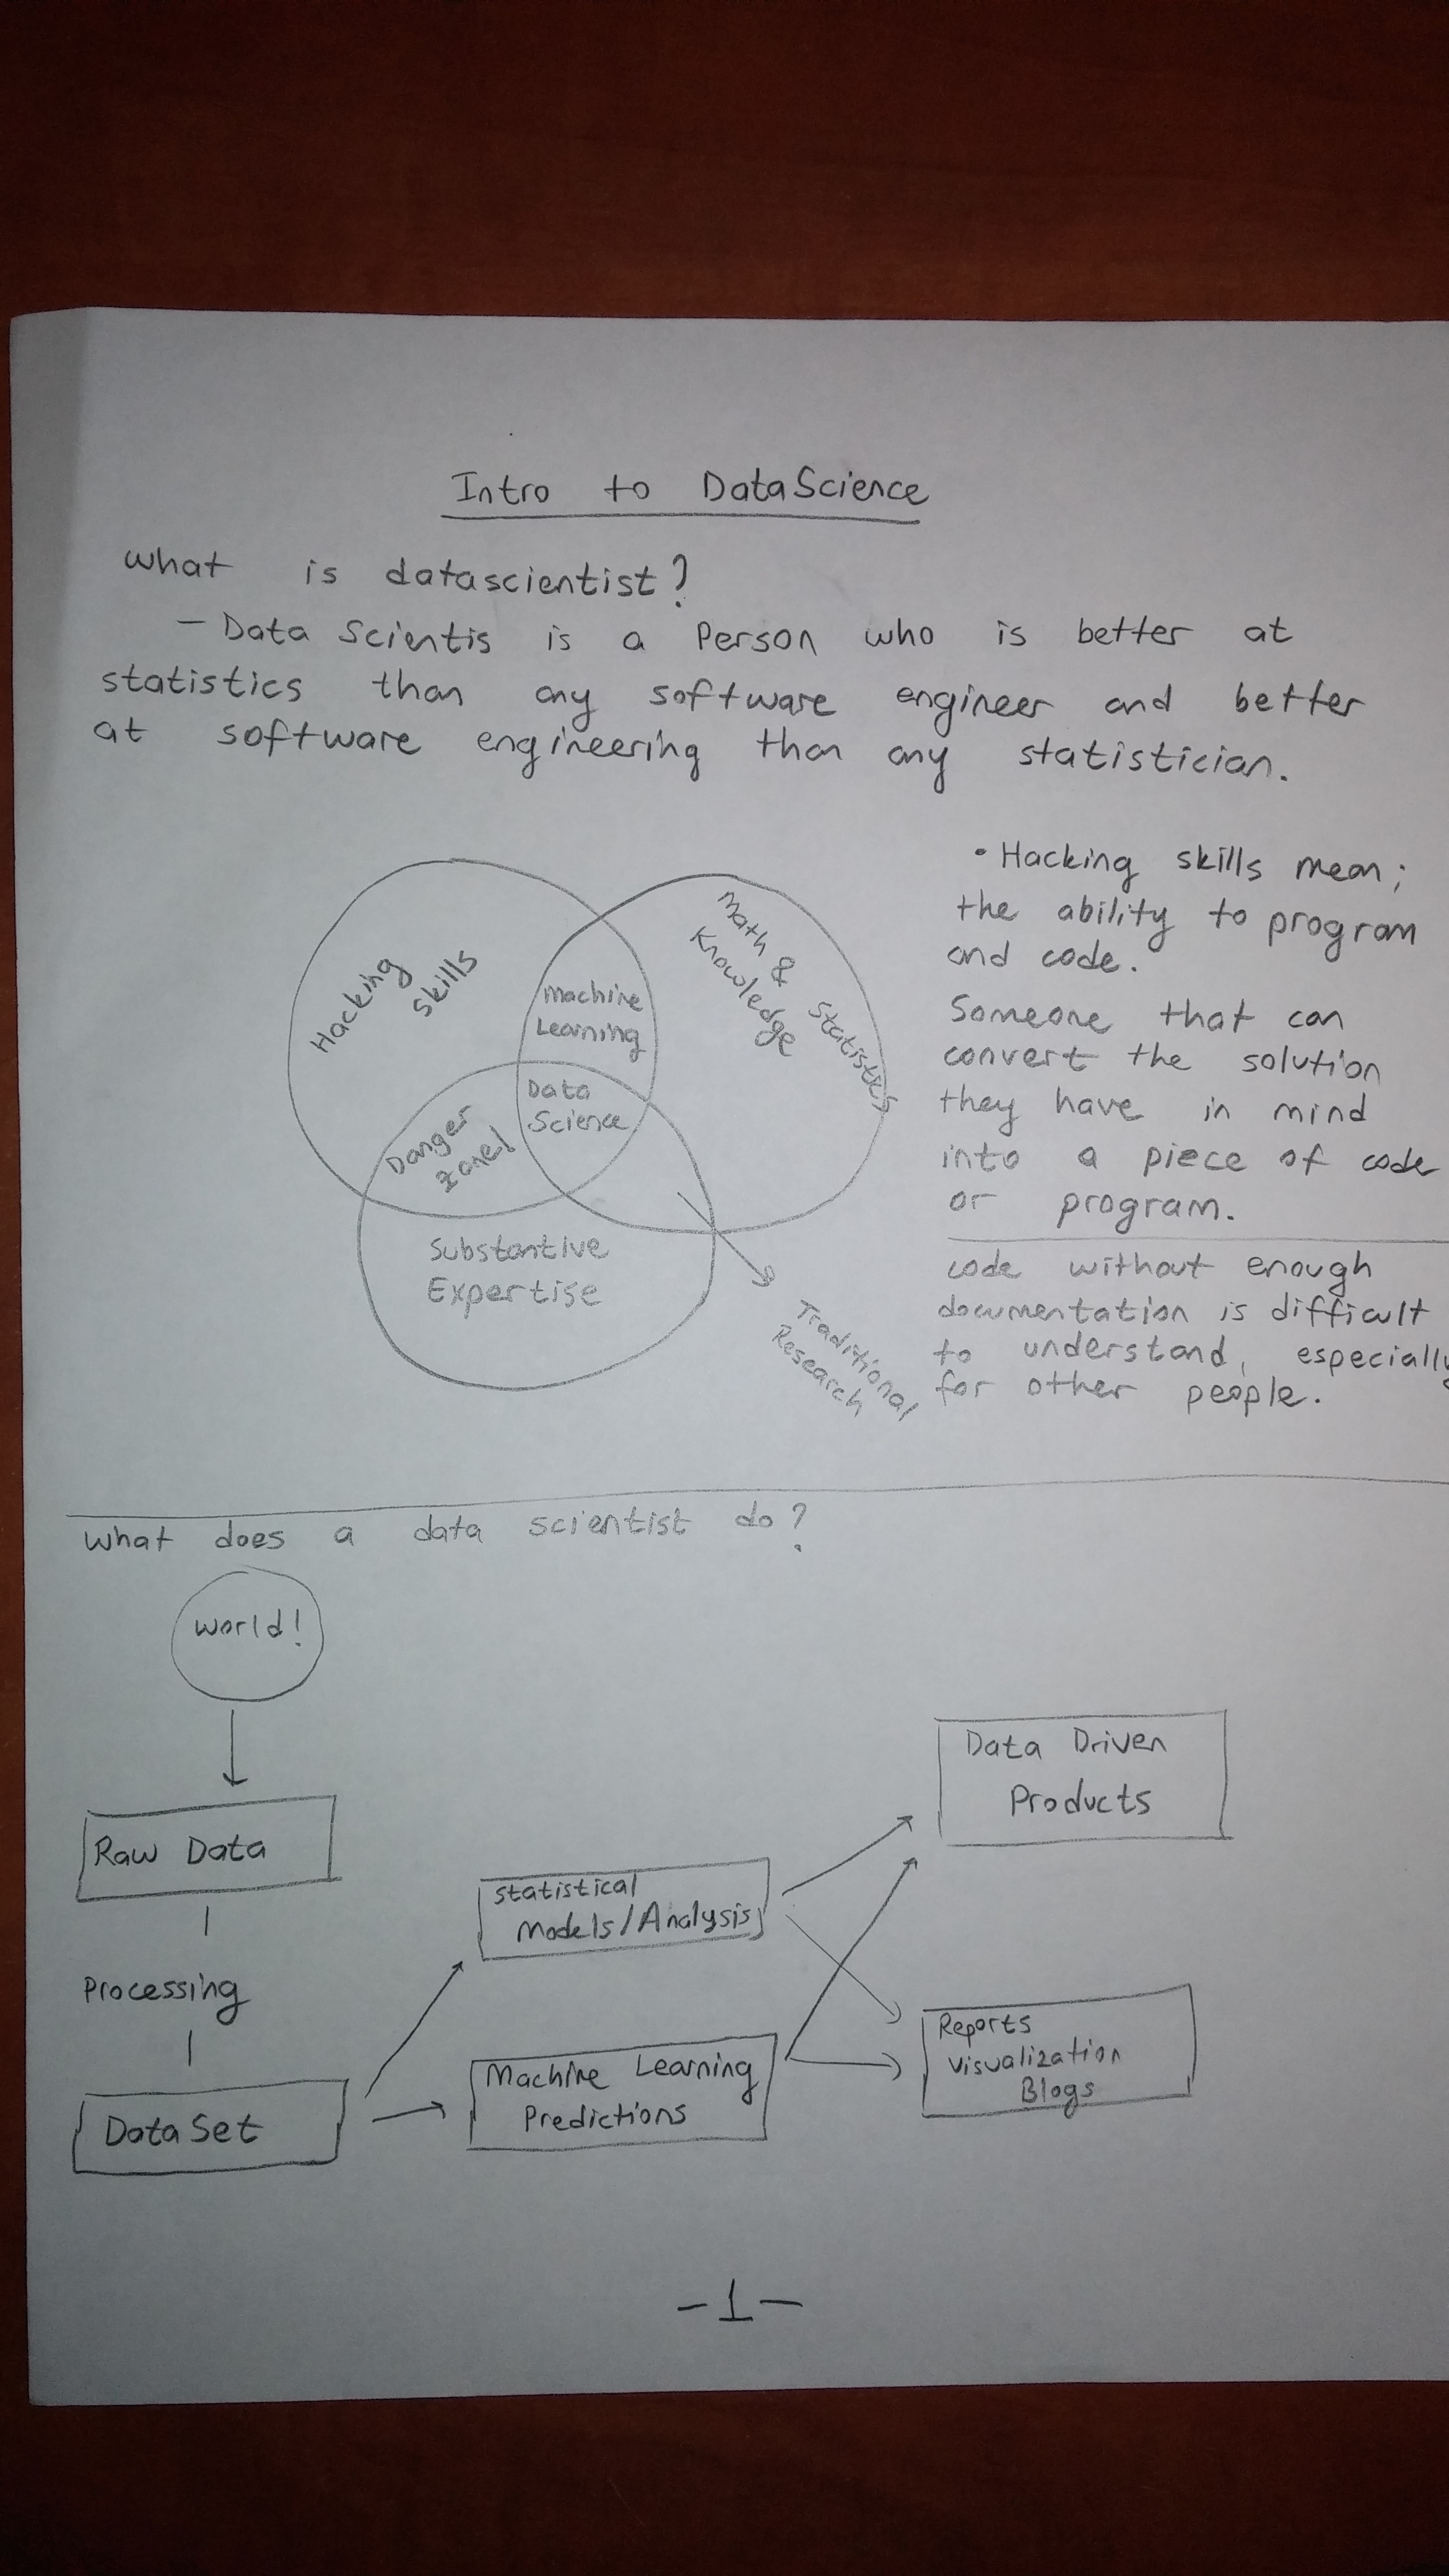 Intro to DataScience
what is datascientist?
– Data Scientis is a Person who is better at
statistics than any software engineer and better
at software engineering than any statistician.
Hacking
skills
Math & Statistics
Knowledge
Machine
Learning
Data
Science
Danger
zone!
Substantive
Expertise
Traditional
Research
• Hacking skills mean;
the ability to program
and code.
Someone that can
convert the solution
they have in mind
into a piece of code
or program.
code without enough
documentation is difficult
to understand, especially
for other people.
what does a data scientist do?
world!
Raw Data
Processing
DataSet
statistical
Models/Analysis
Machine Learning
Predictions
Data Driven
Products
Reports
Visualization
Blogs
-1-